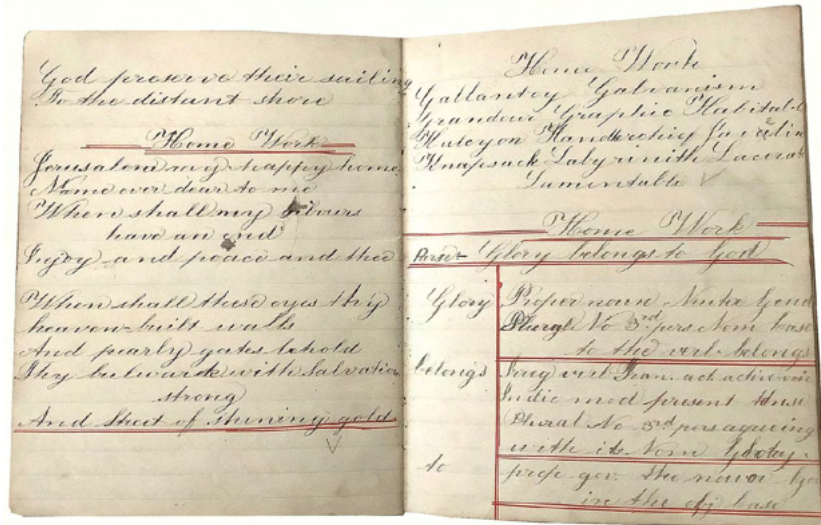 God preserve their sailing
To the distant shore
Home Work
Jerusalem my happy home
Name ever dear to me
When shall my labours
have an end
Injoy and peace and thee
When shall these eyes thy
heaven-built walls
And pearly gates behold
Thy bulwarks with Salvation
strong
And Street of shining gold
Home Work
Gallantry Galvanism
Grandeur Graphic Habitabl
Halcyon Handerchief Javelin
Knapsack Labyrinith Lacerate
Lamentable
Home Work
Parse Glory belongs to God
Glory Proper noun Neuter Gend
Plural No 3rd pers Nom Case
to the verb belongs
belongs Irreg verb Tran. act active voi
Indic mod present tense
Plural No 3rd pers agreeing
with its Nom Glory.
to prep gov. the noun
in the obj case